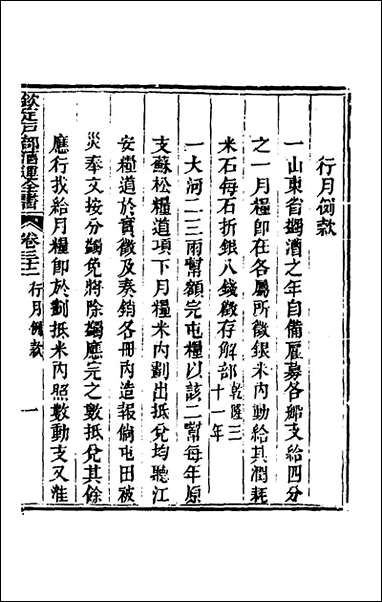 行月例款
一山東省蠲漕之年自備雇募各船支給四分
之一月糧即在各屬所徵銀米內動給其潤耗
米石每石折銀八錢徵存解部乾隆三十一年
一大河二三兩幫額完屯糧以該二幫每年原
支蘇松糧道項下月糧米內劃出抵兌均聽江
安糧道於實徵及奏銷各冊內造報倘屯田被
災奉文按分蠲免將除蠲應完之數抵兌其餘
應行找給月糧即於劃抵米內照數動支又淮
欽定戶部漕運全書 卷三十二 行月例款 一